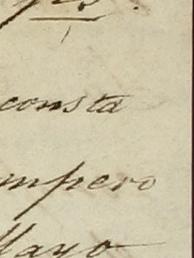 consta
mpero
Mayo